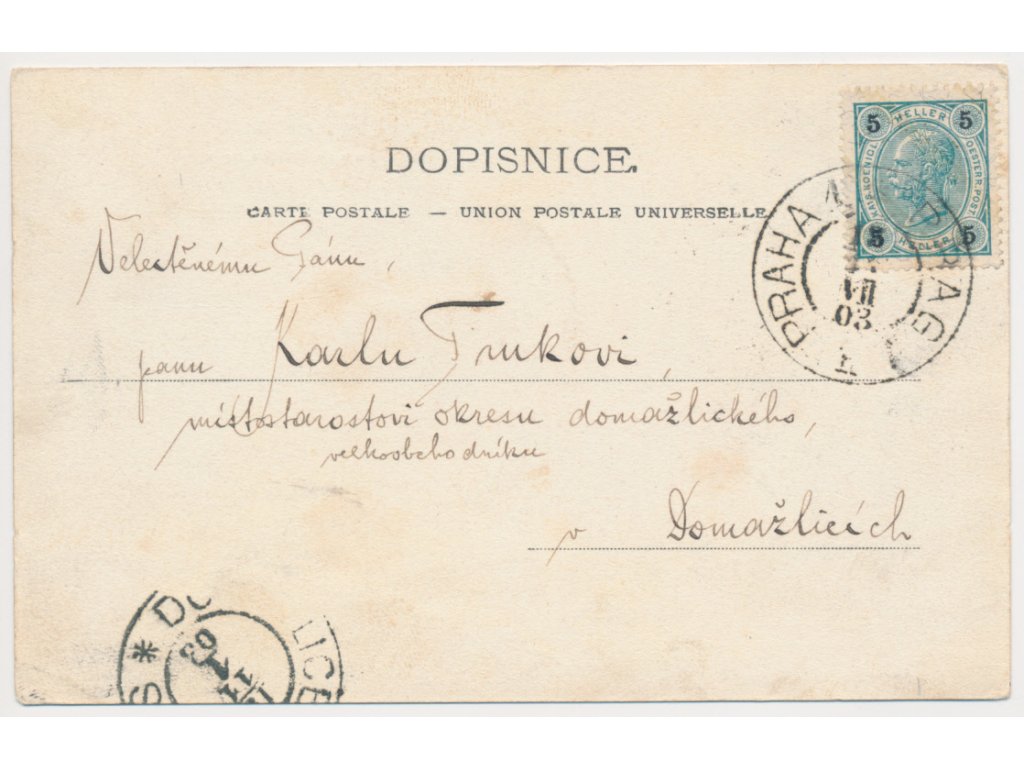 DOPISNICE.
CARTE POSTALE — UNION POSTALE UNIVERSELLE
5 HELLER 5
KAIS. KOENIGL. OESTERR. POST
5 HELLER 5
PRAHA PRAG
VII
03
1.
Velectěnému Pánu,
panu Karlu Trukovi,
místostarostovi okresu domažlického,
velkoobchodníku
v Domažlicích
* DO LICE
03